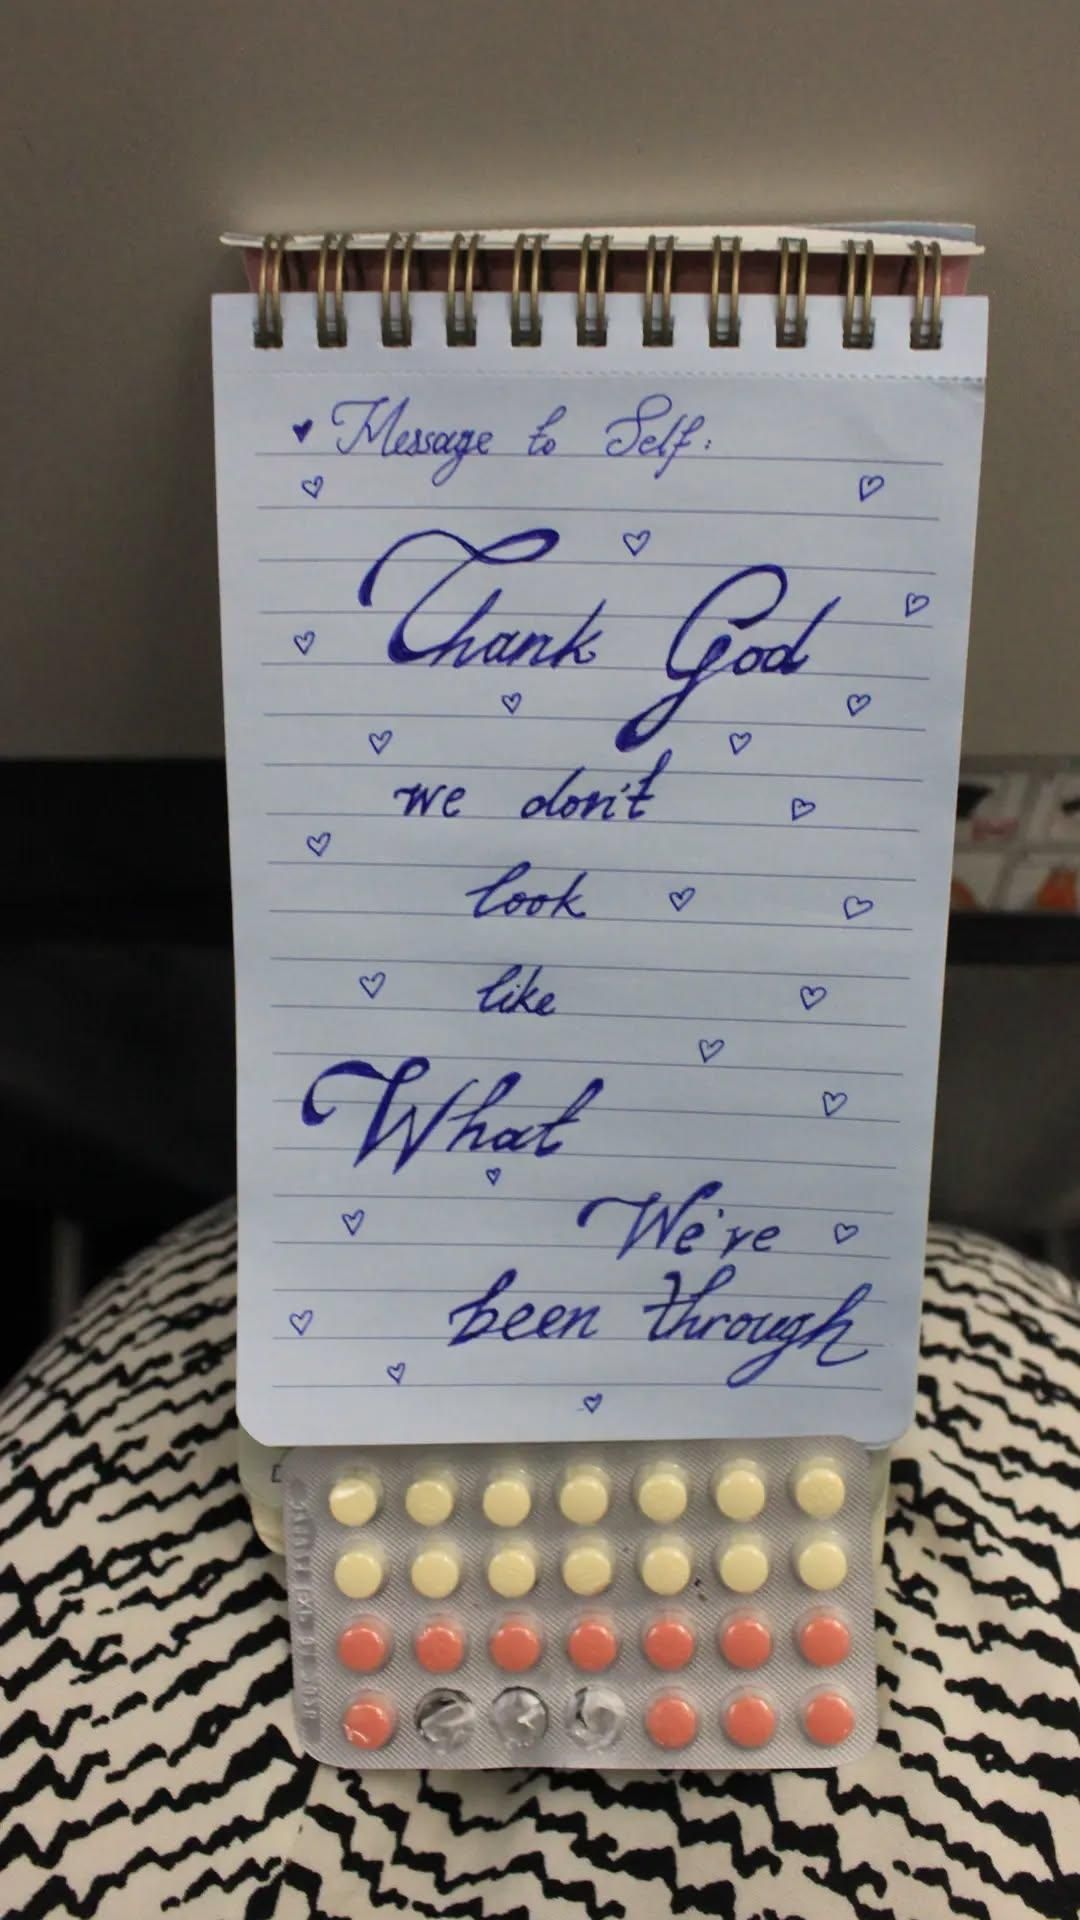 ♥ Message to Self:
Thank God
we don't
look
like
What
We're
been through